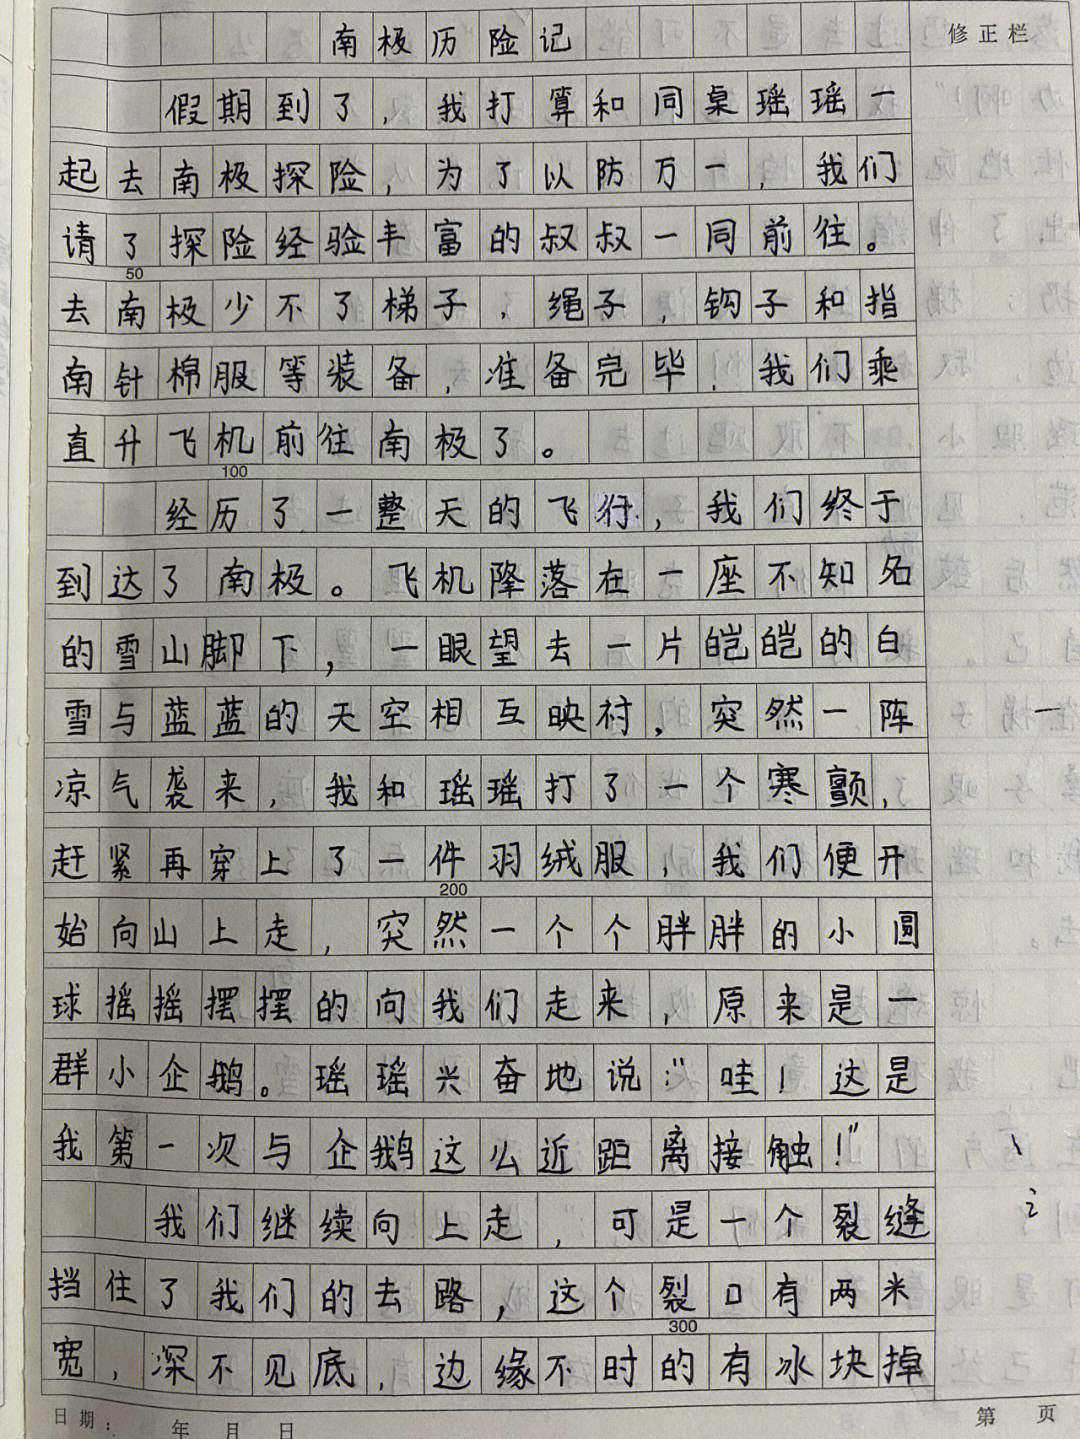 南极历险记
修正栏
假期到了,我打算和同桌瑶瑶一
起去南极探险,为了以防万一,我们
请了探险经验丰富的叔叔一同前往。
50
去南极少不了梯子,绳子,钩子和指
南针棉服等装备,准备完毕,我们乘
直升飞机前往南极了。
100
经历了一整天的飞行,我们终于
到达了南极。飞机降落在一座不知名
的雪山脚下,一眼望去一片皑皑的白
雪与蓝蓝的天空相互映衬,突然一阵
凉气袭来,我和瑶瑶打了一个寒颤,
赶紧再穿上了一件羽绒服,我们便开
200
始向山上走,突然一个个胖胖的小圆
球摇摇摆摆的向我们走来,原来是一
群小企鹅。瑶瑶兴奋地说:"哇!这是
我第一次与企鹅这么近距离接触!"
我们继续向上走,可是一个裂缝
挡住了我们的去路,这个裂口有两米
300
宽,深不见底,边缘不时的有冰块掉
日期: 年 月 日
第 页